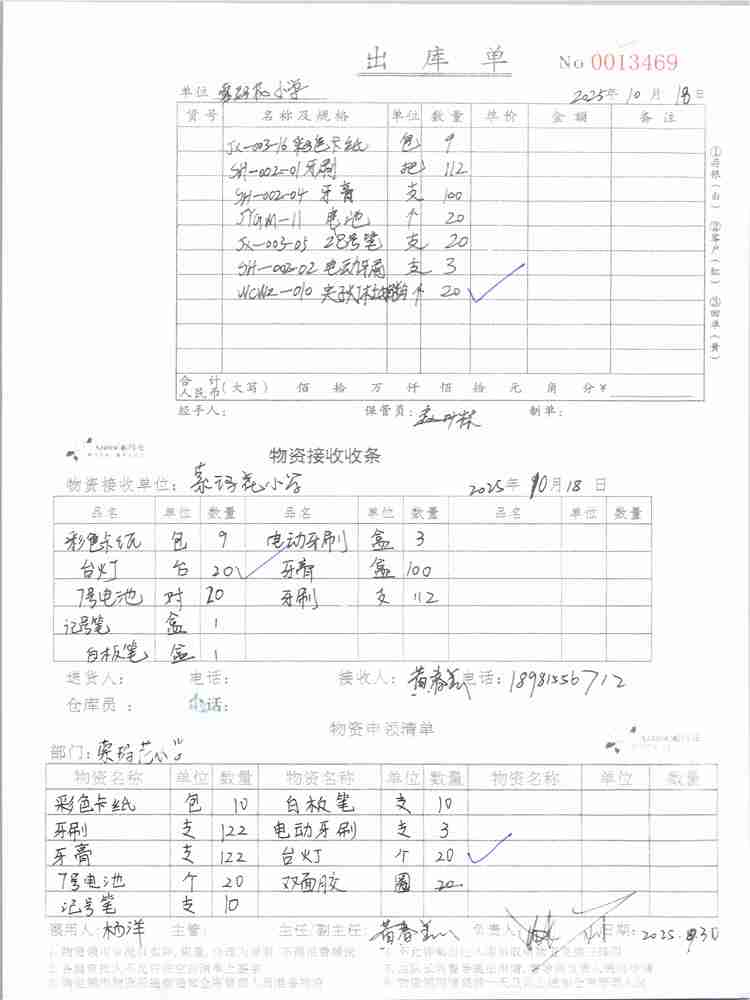 出库单 No 0013469
单位 索玛花小学 2025年10月18日
货号 名称及规格 单位 数量 单价 金额 备注
JX-003-16 彩色卡纸 包 9
SH-002-01 牙刷 把 112
SH-002-04 牙膏 支 100
JYGM-11 电池 个 20
JX-003-05 记号笔 支 20
SH-002-02 电动牙刷 支 3
WCWZ-010 个 20
①存根(白) ②客户(红) ③回单(黄)
合计人民币(大写) 佰 拾 万 仟 佰 拾 元 角 分¥
经手人: 保管员: 制单:
物资接收收条
物资接收单位: 索玛花小学 2025年10月18日
品名 单位 数量 品名 单位 数量 品名 单位 数量
彩色卡纸 包 9 电动牙刷 盒 3
台灯 台 20 牙膏 盒 100
7号电池 对 20 牙刷 支 112
记号笔 盒 1
白板笔 盒 1
送货人: 电话: 接收人: 黄春 电话: 18981556712
仓库员: 电话:
物资申领清单
部门: 索玛花小学
物资名称 单位 数量 物资名称 单位 数量 物资名称 单位 数量
彩色卡纸 包 10 白板笔 支 10
牙刷 支 122 电动牙刷 支 3
牙膏 支 122 台灯 个 20
7号电池 个 20 双面胶 圈 20
记号笔 支 10
领用人: 杨洋 主管: 主任/副主任: 黄春 负责人: 日期: 2025.9.30